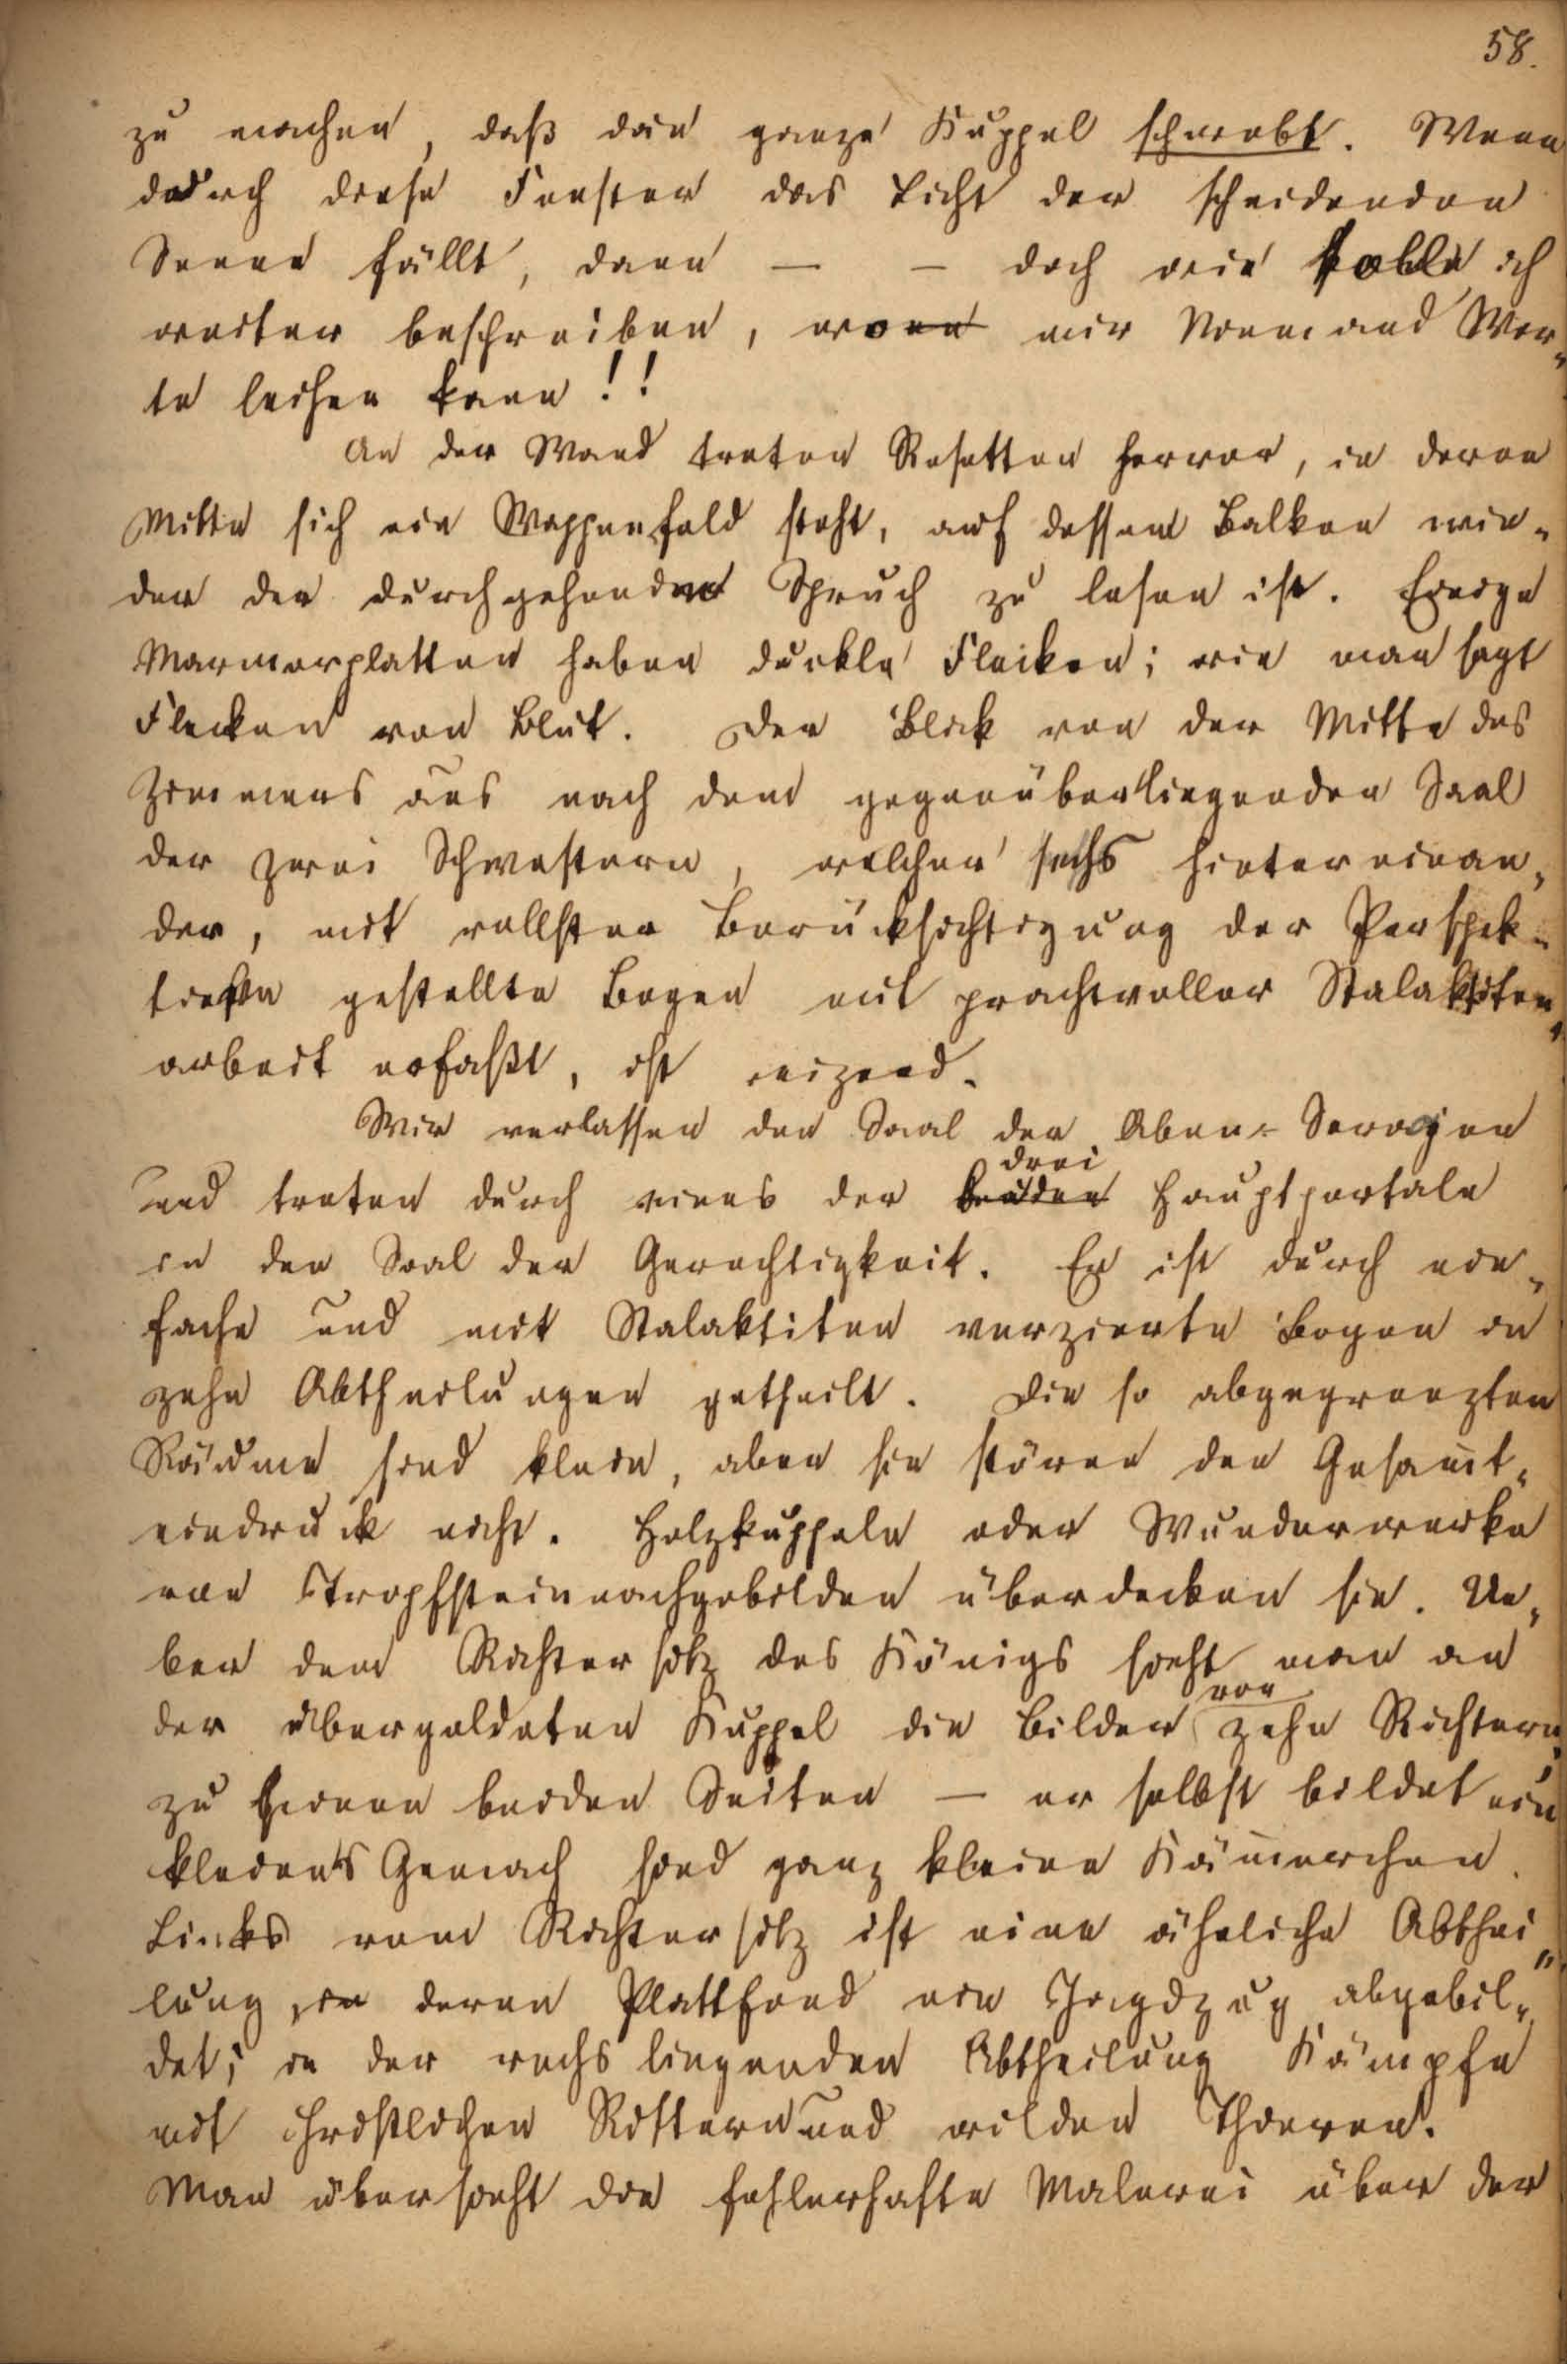 58.
zu machen, daß die ganze Kuppel schwebt. Wenn
durch diese Fenster das Licht der scheidenden
Sonne fällt, dann — — doch wie sollte ich
weiter beschreiben, wenn mir Niemand Wor-
te leihen kann!!
An der Wand treten Rosetten hervor, in deren
Mitte sich ein Wappenfeld steht, auf dessen Balken wie-
der der durchgehende Spruch zu lesen ist. Einige
Marmorplatten haben dunkle Flecken; wie man sagt
Flecken von Blut. Der Blick von der Mitte des
Zimmers aus nach dem gegenüberliegenden Saal
der zwei Schwestern, welchen sechs hintereinan-
der, mit vollster Berücksichtigung der Perspek-
tieve gestellte Bogen mit prachtvoller Stalaktiten-
arbeit erfaßt, ist reizend.
Wir verlassen den Saal der Aben-Seragen
und treten durch eines der beiden drei Hauptportale
in den Saal der Gerechtigkeit. Er ist durch ein-
fache und mit Stalaktiten verzierte Bogen in
zehn Abtheilungen getheilt. Die so abgegrenzten
Räume sind klein, aber sie stören den Gesammt-
eindruck nicht. Holzkuppeln oder Wunderwerke
von Tropfsteinnachgebilden überdecken sie. Ue-
ber dem Richtersitz des Königs sieht man an
der übergoldeten Kuppel die Bilder von zehn Richtern,
zu seinen beiden Seiten — er selbst bildet ein
kleines Gemach sind ganz kleine Kämmerchen.
Links vom Richtersitz ist eine ähnliche Abthei-
lung, in deren Plattfond ein Jagdzug abgebil-
det; in der rechs liegenden Abtheilung Kämpfe
mit christlichen Rittern und wilden Thieren.
Man übersieht die fehlerhafte Malerei über der